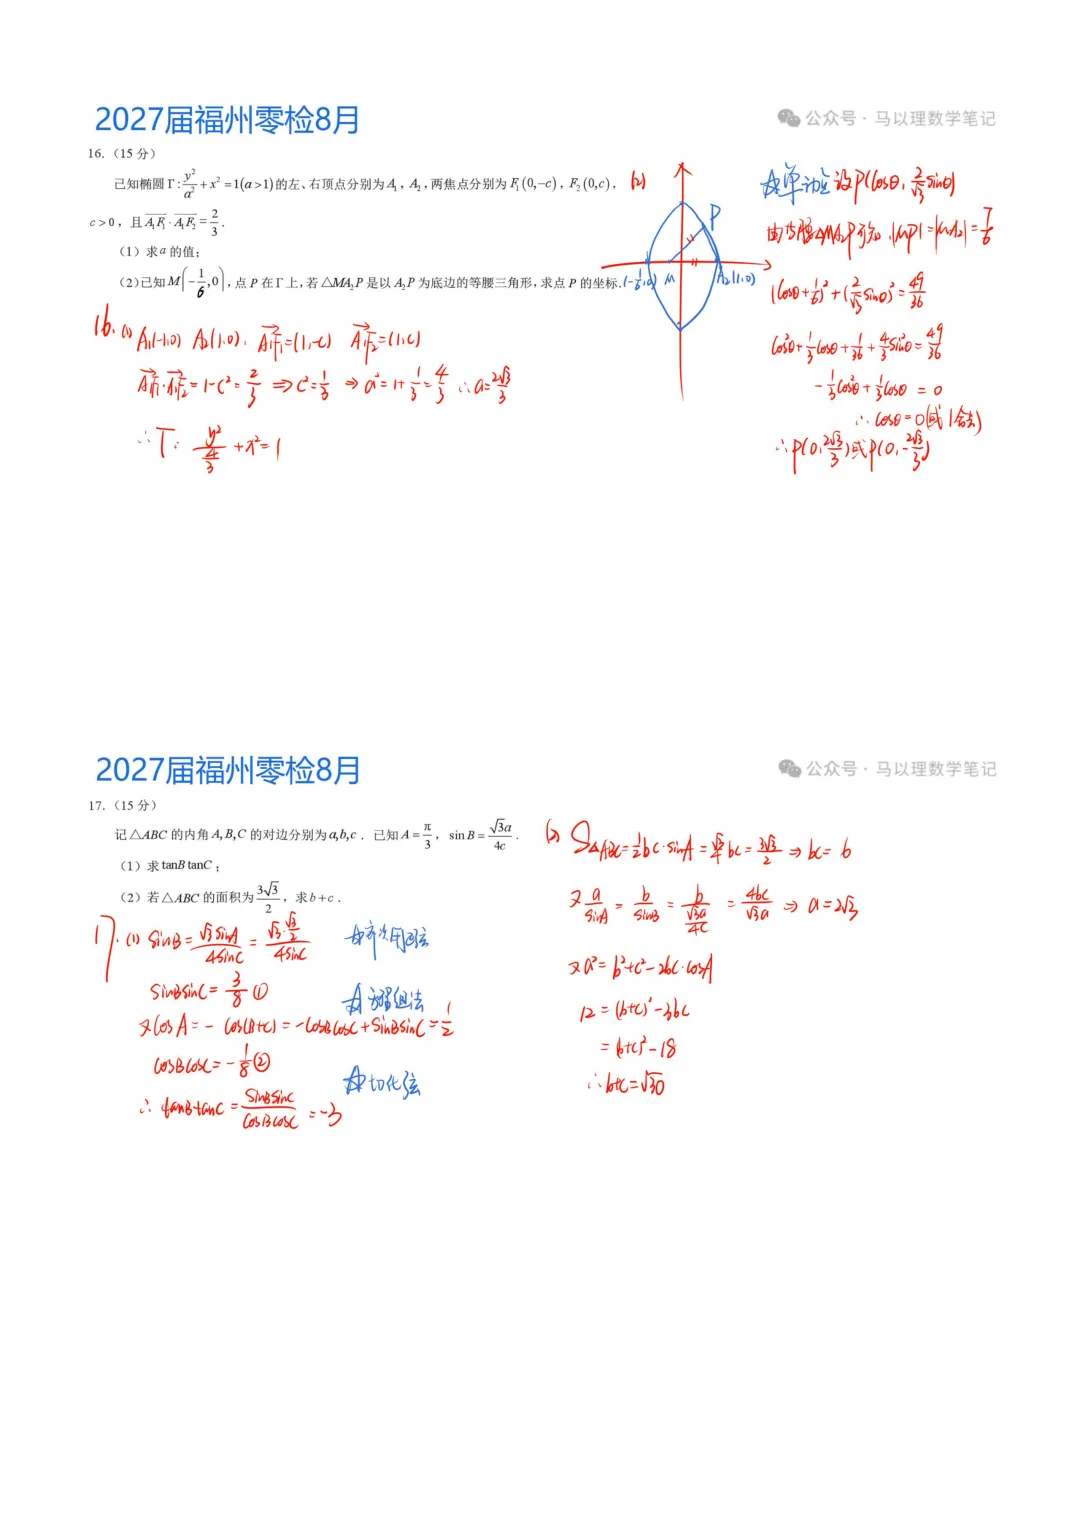 2027届福州零检8月
公众号 · 马以理数学笔记
16.（15 分）
已知椭圆 Γ: y²/a² + x² = 1(a>1) 的左、右顶点分别为 A₁，A₂，两焦点分别为 F₁(0,-c)，F₂(0,c)，
c>0，且 A₁F₁ · A₁F₂ = 2/3 .
（1）求 a 的值；
（2）已知 M(-1/6,0)，点 P 在 Γ 上，若 △MA₂P 是以 A₂P 为底边的等腰三角形，求点 P 的坐标.
16. (1) A₁(-1,0) A₂(1,0). A₁F₁=(1,-c) A₁F₂=(1,c)
A₁F₁·A₁F₂=1-c²=2/3 ⇒ c²=1/3 ⇒ a²=1+1/3=4/3 ∴a=2√3/3
∴ Γ: y²/(4/3) + x² = 1
(2)
P
(-1/6,0) M A₂(1,0)
☆单动点 设P(cosθ, 2/√3 sinθ)
由等腰△MA₂P可知, |MP|=|MA₂|=7/6
(cosθ+1/6)²+(2/√3 sinθ)²=49/36
cos²θ+1/3cosθ+1/36+4/3sin²θ=49/36
-1/3cos²θ+1/3cosθ=0
∴cosθ=0(或1舍去)
∴P(0,2√3/3)或P(0,-2√3/3)
2027届福州零检8月
公众号 · 马以理数学笔记
17.（15 分）
记 △ABC 的内角 A,B,C 的对边分别为 a,b,c . 已知 A=π/3，sin B=√3a/4c .
（1）求 tanB tanC；
（2）若 △ABC 的面积为 3√3/2，求 b+c .
17. (1) sinB=√3sinA/4sinC=√3·√3/2/4sinC
☆齐次用正弦
sinBsinC=3/8 ①
☆方程组法
又cosA=-cos(B+C)=-cosBcosC+sinBsinC=1/2
cosBcosC=-1/8 ②
☆切化弦
∴tanBtanC=sinBsinC/cosBcosC=-3
(2) S△ABC=1/2bc·sinA=√3/4bc=3√3/2 ⇒ bc=6
又a/sinA=b/sinB=b/(√3a/4c)=4bc/√3a ⇒ a=2√3
又a²=b²+c²-2bc·cosA
12=(b+c)²-3bc
=(b+c)²-18
∴b+c=√30